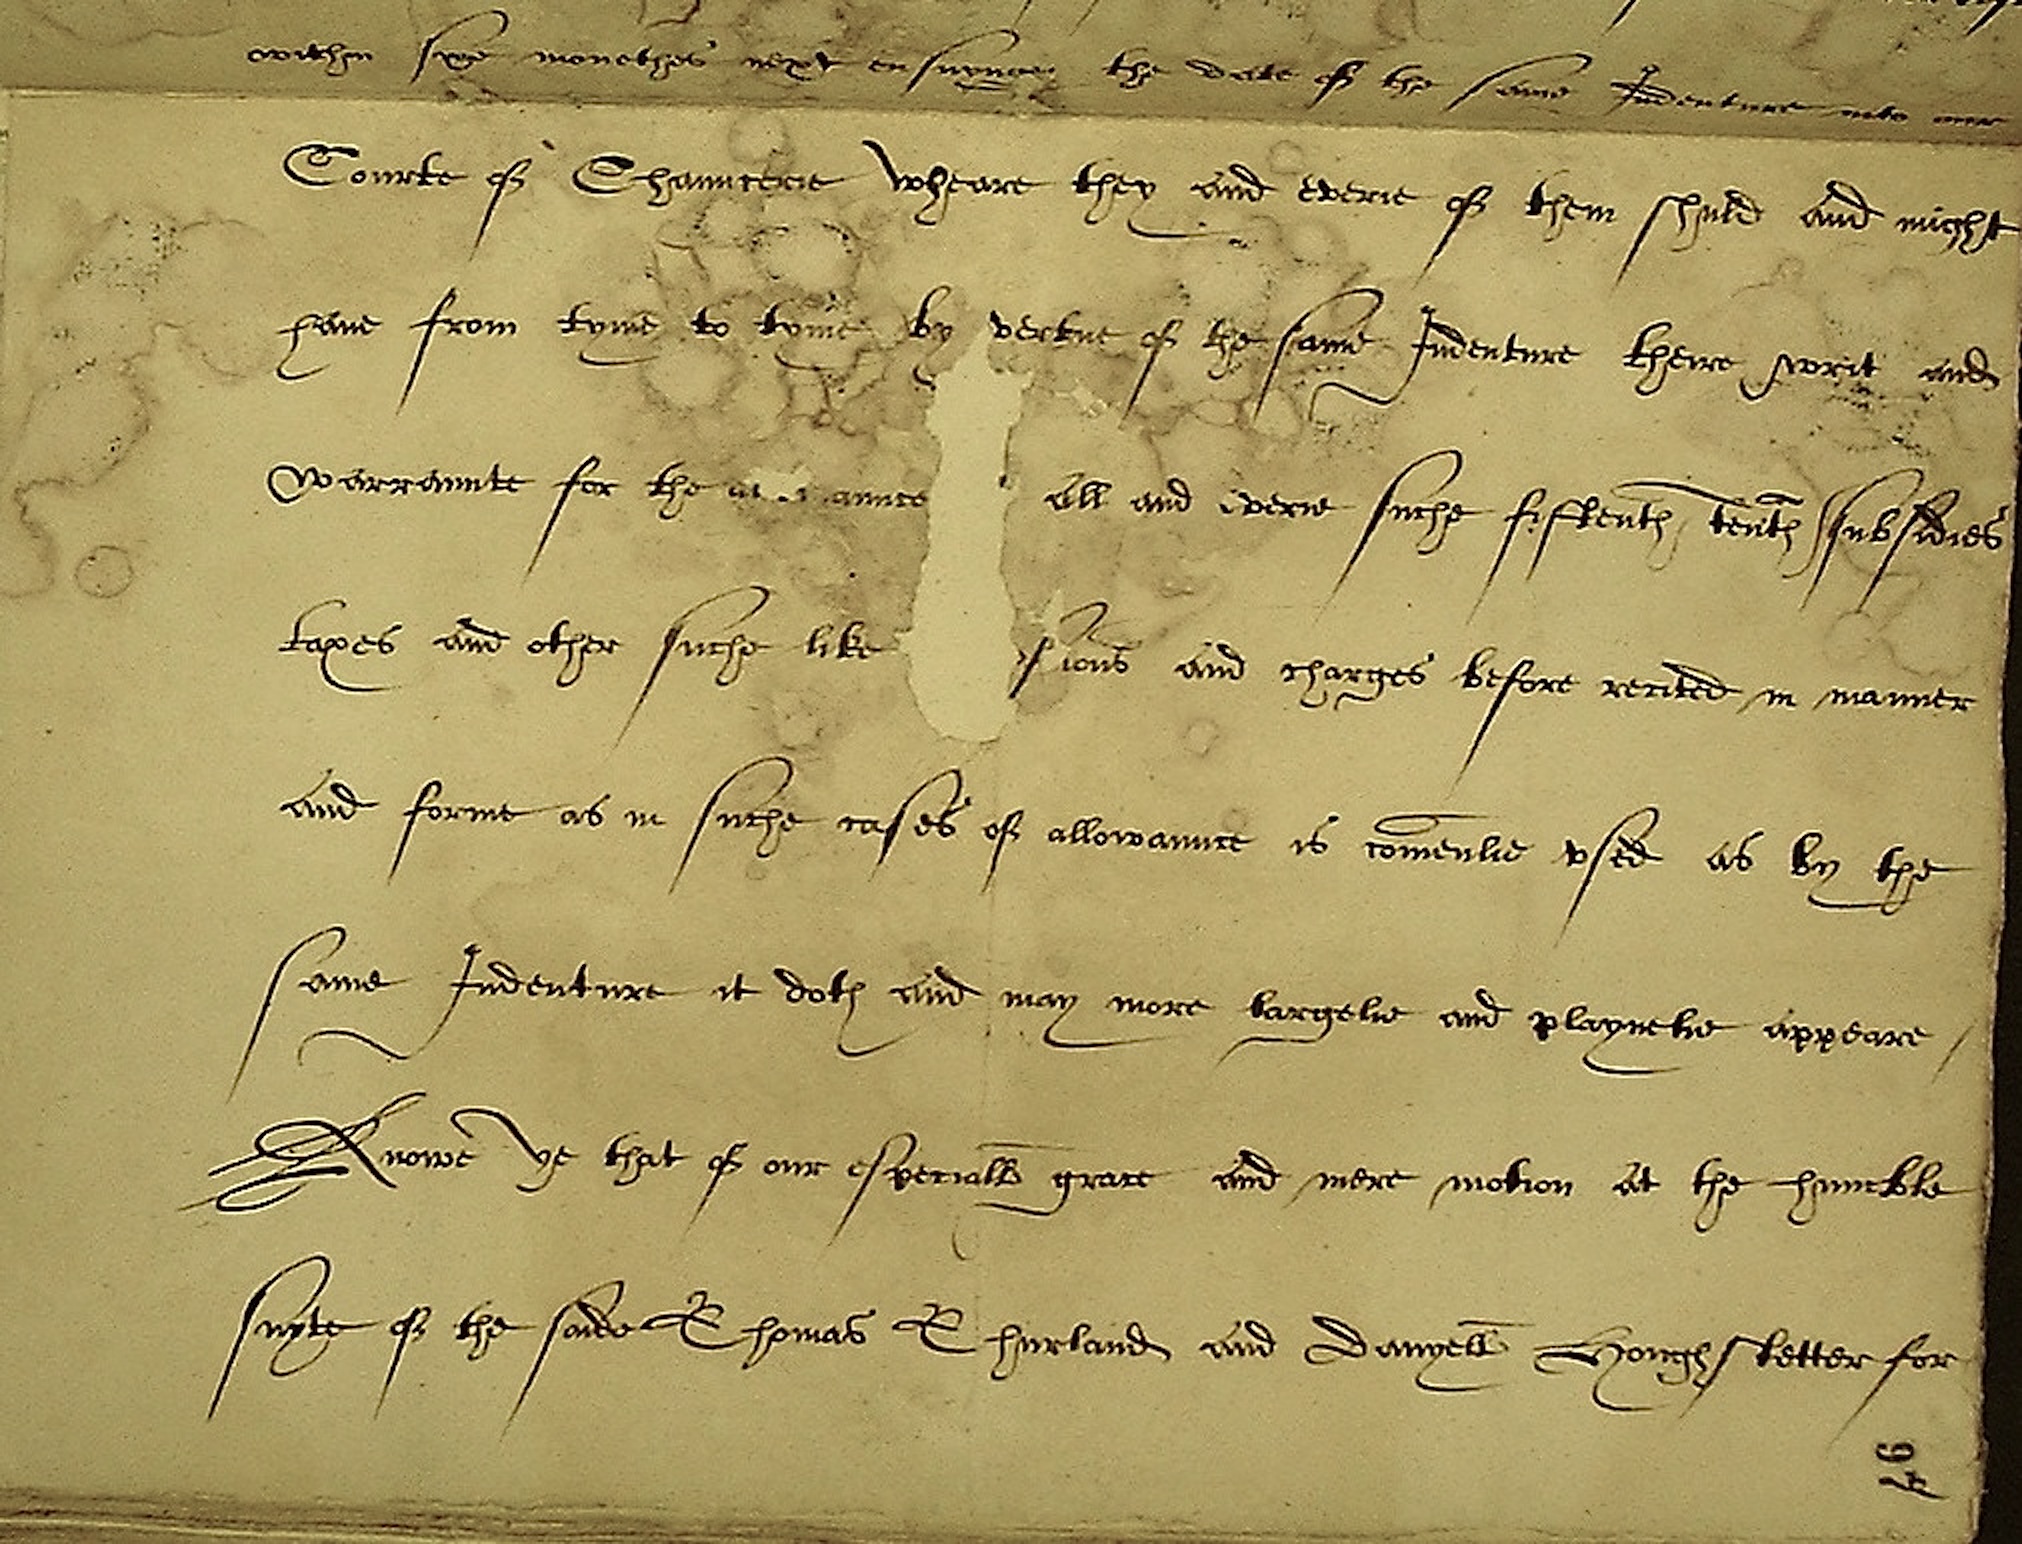 within sixe monethes next ensuynge the date of the same Indenture into our
Courte of Chauncerie wheare they and everie of them shuld and might
have from tyme to tyme by vertue of the same Indenture theire writ and
warraunte for the all and everie suche fiftenth tenth subsidies
taxes and other suche like and charges before recited in manner
and forme as in suche cases of allowaunce is comenlie vsed as by the
same Indenture it doth and may more largelie and playnelie appeare /
Knowe ye that of our especiall grace and mere motion at the humble
suyte of the saide Thomas Thurland and Danyell Houghstetter for